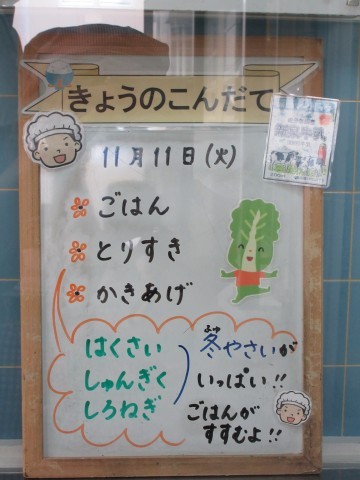 きょうのこんだて
11月11日(火)
ごはん
とりすき
かきあげ
はくさい
しゅんぎく
しろねぎ
冬やさいが
ふゆ
いっぱい!!
ごはんが
すすむよ!!